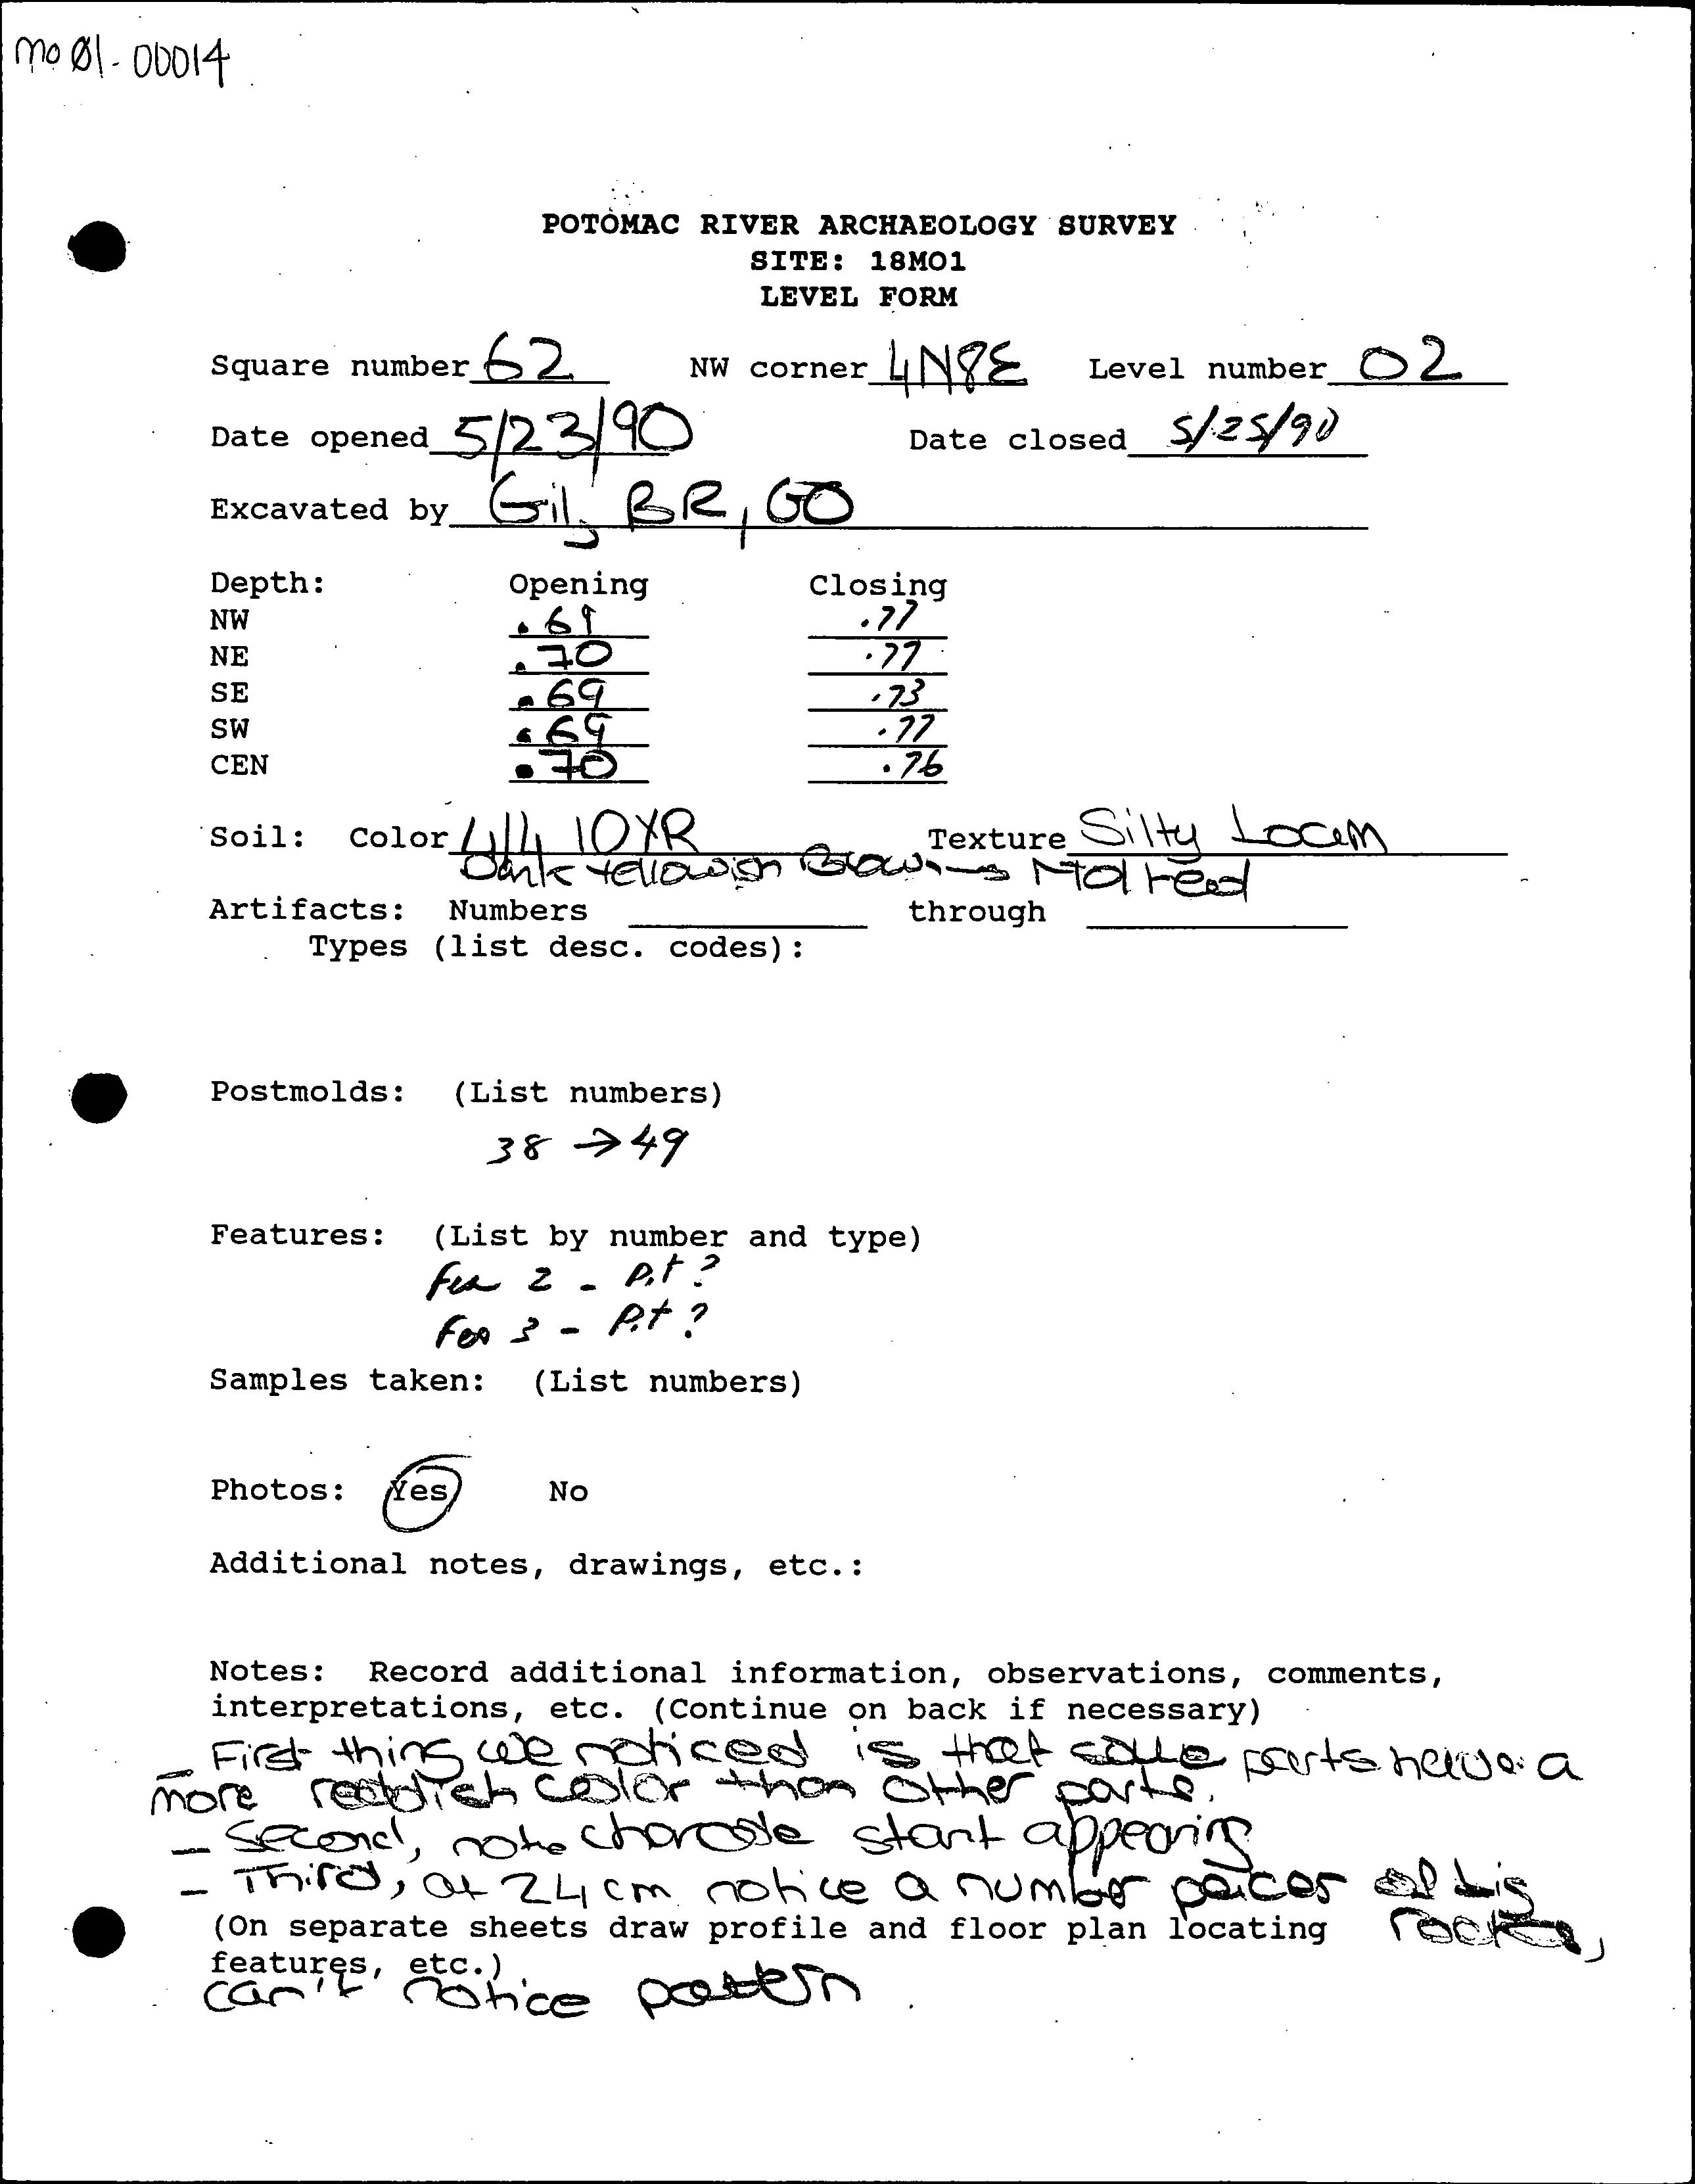 mo Ø1-00014
POTOMAC RIVER ARCHAEOLOGY SURVEY
SITE: 18MO1
LEVEL FORM
Square number 62 NW corner 4N8E Level number 02
Date opened 5/23/90 Date closed 5/25/90
Excavated by Gil, BR, GO
Depth: Opening Closing
NW .69 .77
NE .70 .77
SE .69 .73
SW .69 .77
CEN .70 .76
Soil: Color 4/4 10YR Texture Silty Loam
Dark Yellowish Brown → Motteled
Artifacts: Numbers through
Types (list desc. codes):
Postmolds: (List numbers)
38 → 49
Features: (List by number and type)
Fea 2 - Pit?
Fea 3 - Pit?
Samples taken: (List numbers)
Photos: Yes No
Additional notes, drawings, etc.:
Notes: Record additional information, observations, comments,
interpretations, etc. (Continue on back if necessary)
- First thing we noticed is that some parts have a
more reddish color than other parts.
- Second, note charcole start appearing
- Third, at 24 cm notice a number peices of big
(On separate sheets draw profile and floor plan locating rocks,
features, etc.)
can't notice pattern